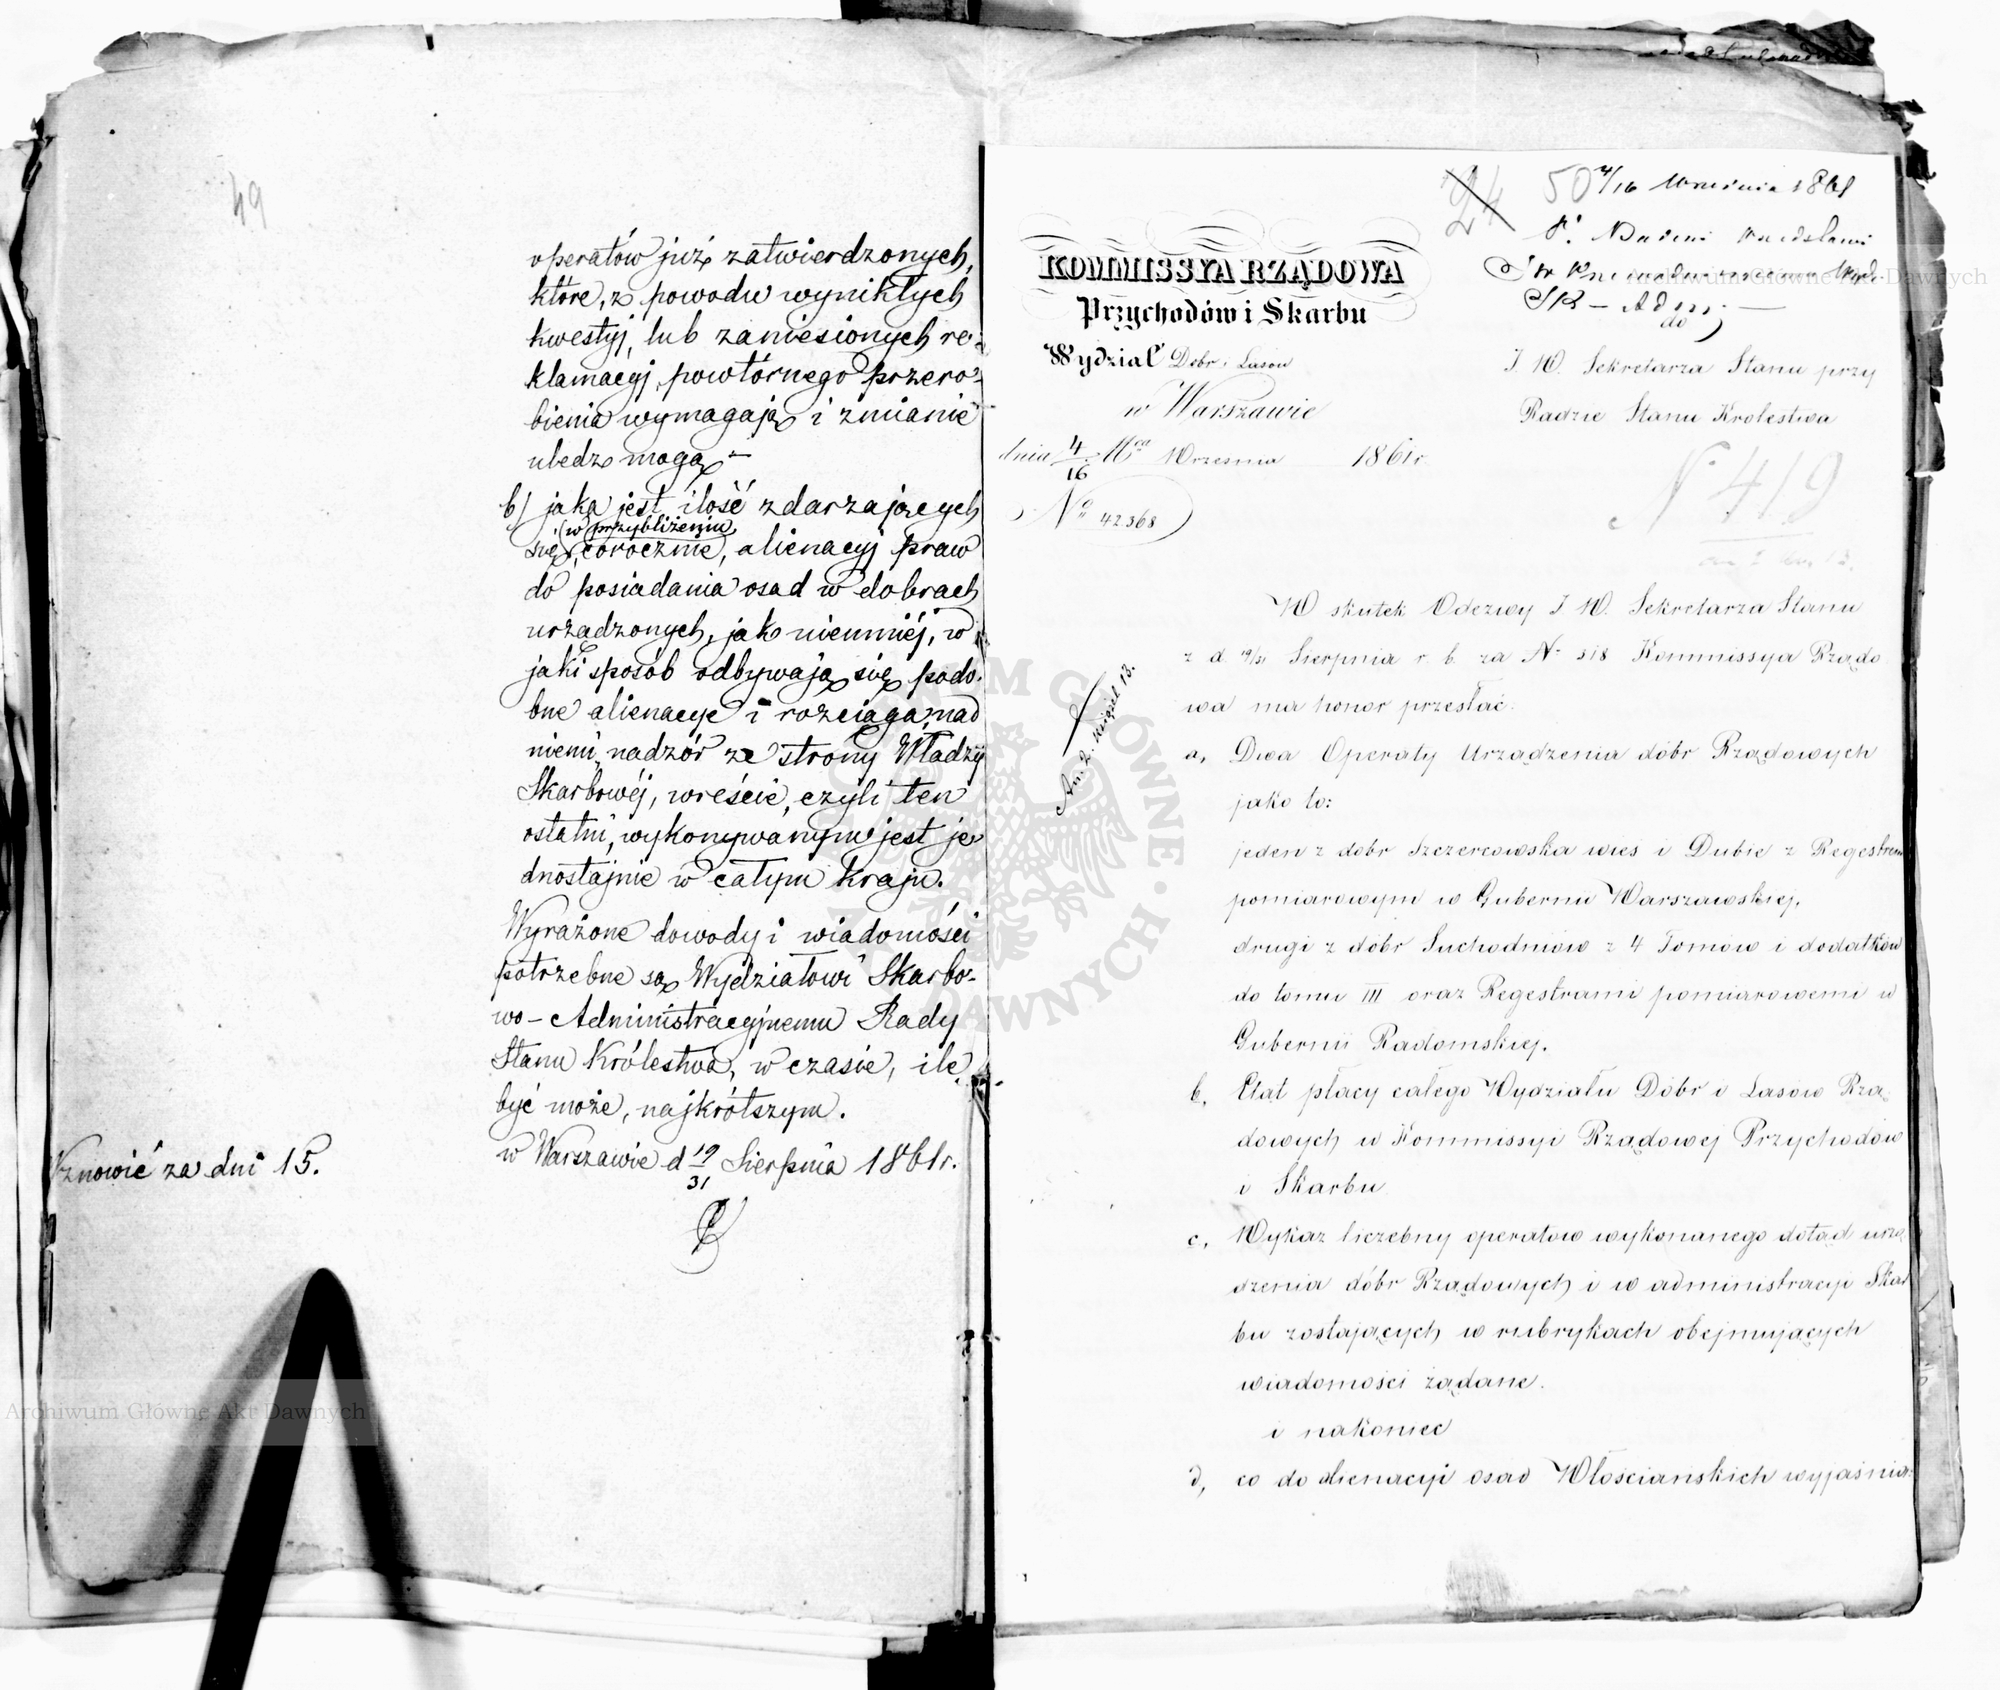 49
operatów już zatwierdzonych,
które, z powodu wynikłych
kwestyj, lub zaniesionych re-
klamacyj, powtórnego przero-
bienia wymagają i zmianie
uledz mogą –
b) jaka jest ilość zdarzających
(w przybliżeniu)
się, corocznie, alienacyj praw
do posiadania osad w dobrach
urządzonych, jak niemniéj, w
jaki sposób odbywają się podo-
bne alienacye i rozciąga nad
niemi nadzór ze strony Władzy
Skarbowéj, wreście, czyli ten
ostatni, wykonywanym jest je
dnostajnie w całym kraju.
Wyrażone dowody i wiadomości
potrzebne są Wydziałowi Skarbo-
wo-Administracyjnemu Rady
Stanu Królestwa, w czasie, ile
być może, najkrótszym.
w Warszawie d 19/31 Sierpnia 1861 r.
Wznowić za dni 15.
24
50
4/16 Września 1861
KOMMISSYA RZĄDOWA
Przychodów i Skarbu
Wydział Dobr i Lasów
w Warszawie
dnia 4/16 Mca Września 1861 r.
No 42368
SR – Admj –
do
J. W. Sekretarza Stanu przy
Radzie Stanu Krolestwa
N. 419
An. 2. książek 13.
W skutek Odezwy J W. Sekretarza Stanu
z d. 19/31 Sierpnia r. b. za N. 318 Kommissya Rządo
wa ma honor przesłać.
a, Dwa Operaty Urządzenia dóbr Rządowych
jako to:
jeden z dobr Szczercowska wieś i Dubie z Regestrem
pomiarowym w Gubernii Warszawskiej.
drugi z dóbr Suchedniów z 4 Tomów i dodatków
do tomu III oraz Regestrami pomiarowemi w
Gubernii Radomskiej.
b, Etat płacy całego Wydziału Dóbr i Lasów Rzą-
dowych w Kommissyi Rządowej Przychodów
i Skarbu
c, Wykaz liczebny operatów wykonanego dotąd urzą
dzenia dóbr Rządowych i w administracyi Skar
bu zostających w rubrykach obejmujących
wiadomości żądane.
i nakoniec
d, co do alienacyi osad Włościańskich wyjaśnia:
Archiwum Główne Akt Dawnych